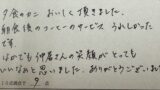 夕食のカニ おいしく頂きました。
朝食後のコーヒーのサービス うれしかった
です。
仲居さんの笑顔が とっても
いいなあと思いました。ありがとうござい
9